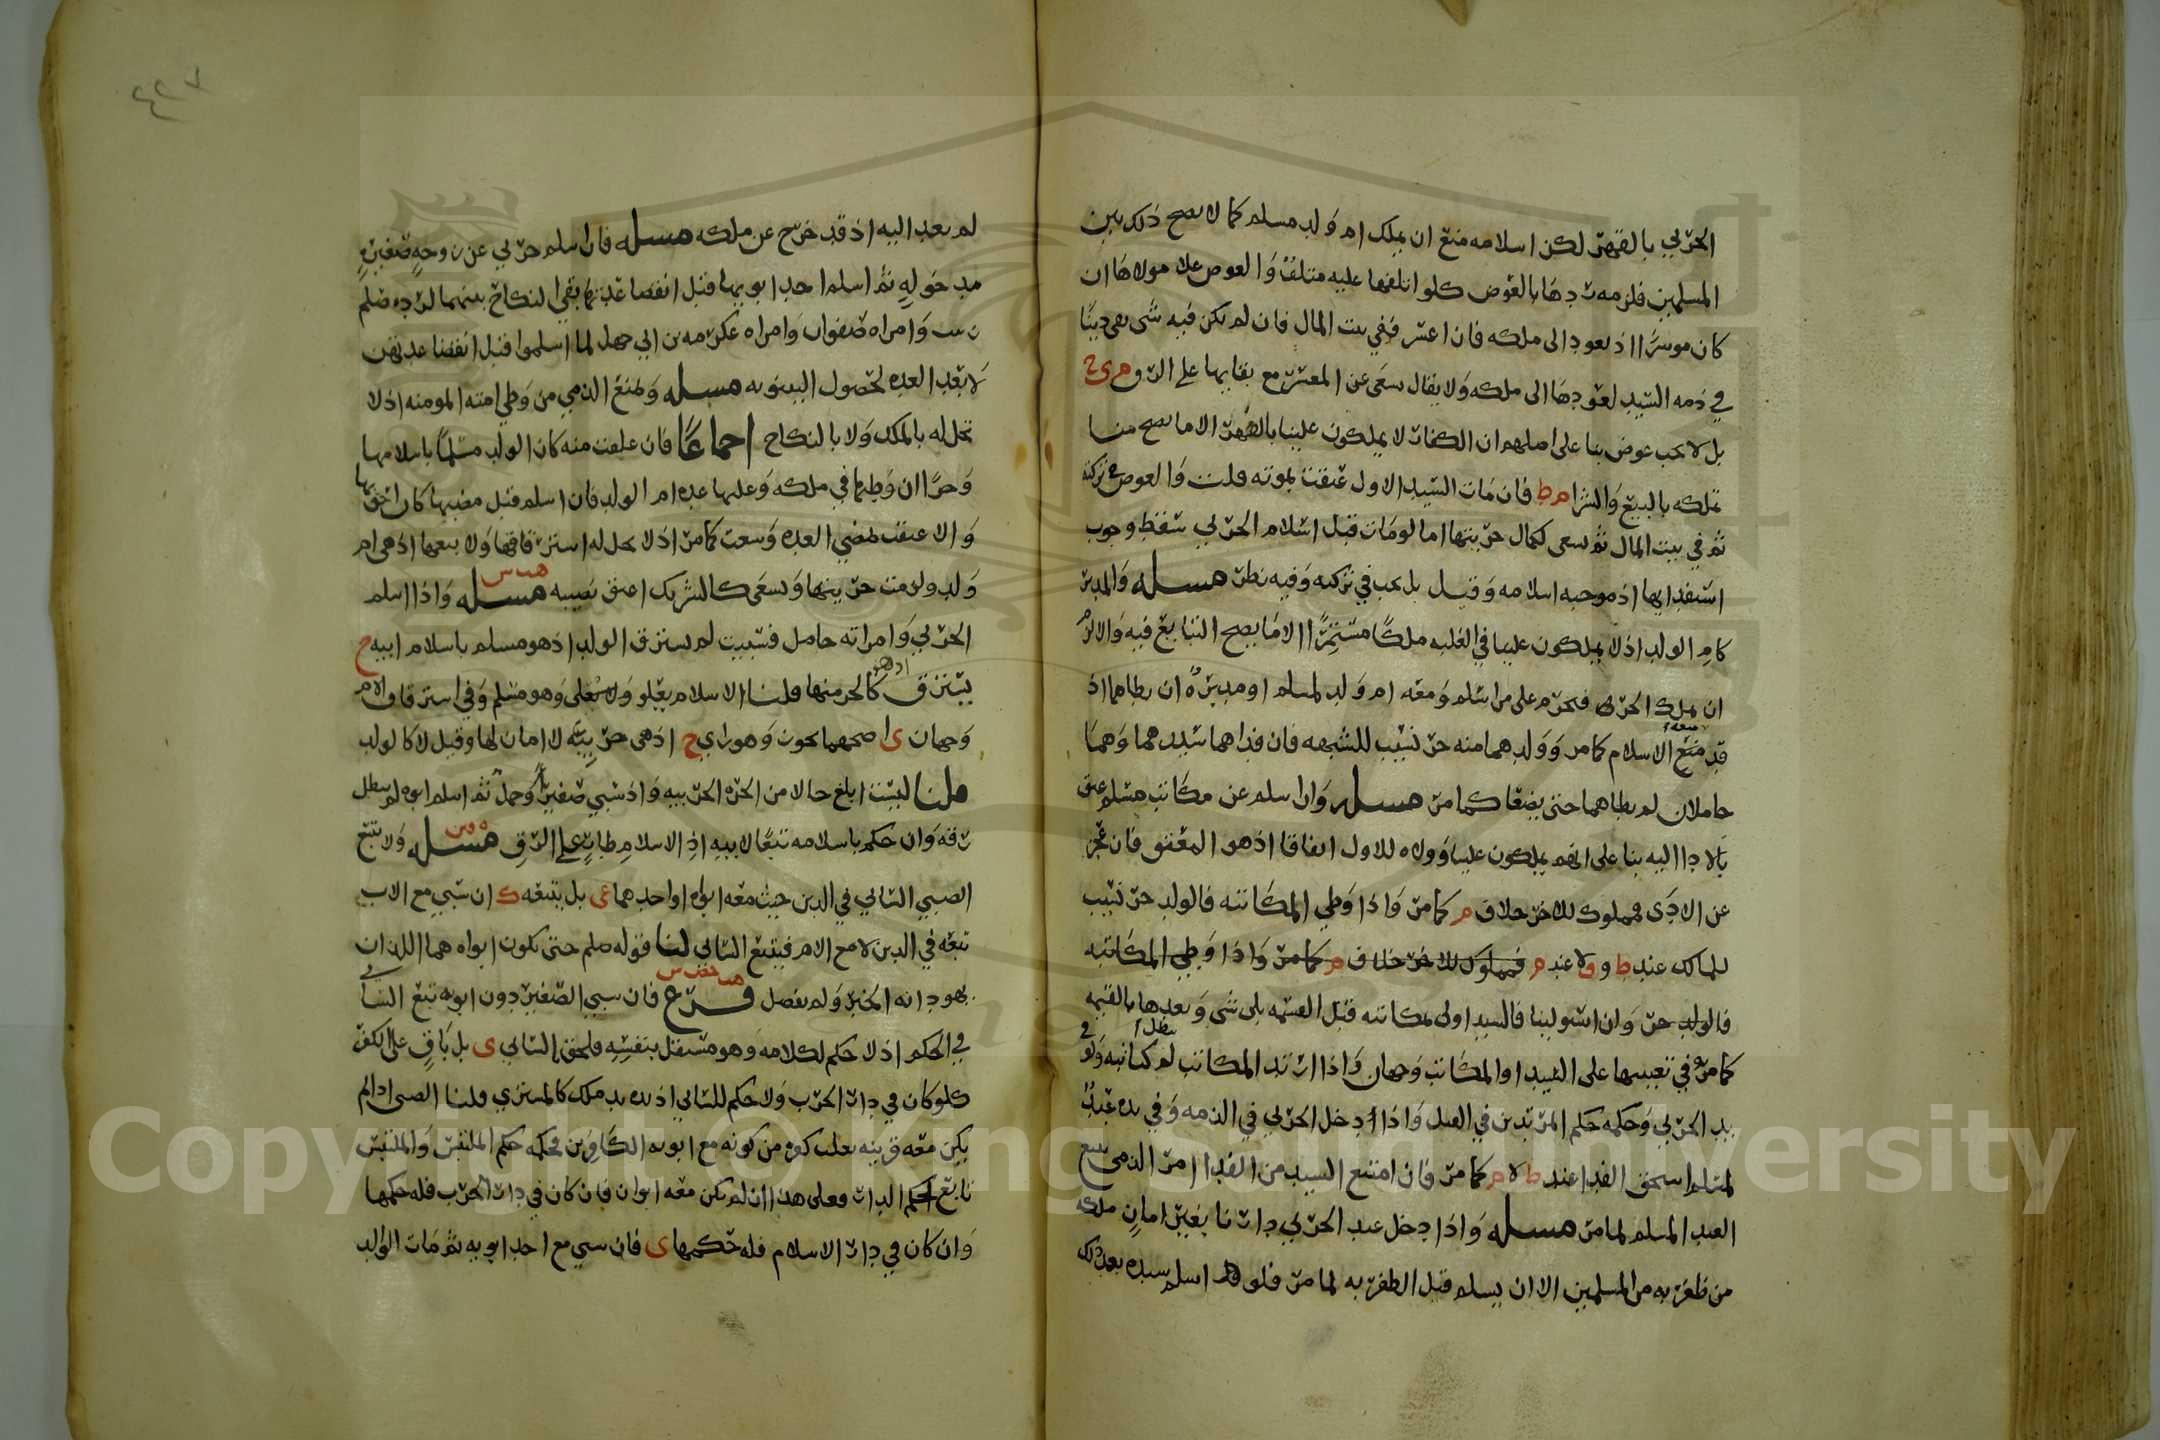 الحربي بالقهر لكن اسلامه منع ان يملك ام ولد مسلم كما لا يصح ذلك بين
المسلمين فلزمه ردها بالعوض كلو اتلفها عليه متلف والعوض على مولاها ان
كان موسرا اذ يعود الى ملكه فان اعسر ففي بيت المال فان لم يكن فيه شى بقي دينا
في ذمه السيد لعودها الى ملكه ولا يقال سعى عن المعسر مع بقائها على الرق م ى ح
بل لا يجب عوض بنا على اصلهم ان الكفار لا يملكون علينا بالقهر الا ما يصح منا
تملكه بالبيع والشرا م ط فان مات السيد الاول عتقت بموته قلت والعوض في تركته
ثم في بيت المال ثم تسعى لكمال حريتها اما لو مات قبل اسلام الحربي سقط وجوب
استفدايها اذ موجبه اسلامه وقيل بل يجب في تركته وفيه نظر مسله والمدبر
كام الولد اذ لا يملكون علينا في الغلبه ملكا مستقرا الا ما يصح التبايع فيه والا لزم
ان يملك الحر فيحرم على من اسلم ومعه ام ولد لمسلم او مدبره ان يطاهما اذ
قد منع الاسلام كما مر وولدهما منه حر نسيب للشبهه فان فداهما سيدهما وهما
حاملان لم يطاهما حتى يضعا كما مر مسله وان اسلم عن مكاتب مسلم عتق
بالادا اليه بنا على انهم يملكون علينا وولاه للاول اتفاقا اذ هو المعتق فان عجز
عن الادى فمملوك للاخر خلاف م كما مر واذا وطي المكاتبه فالولد حر نسيب
للمالك عند ط و ق لا عند م فمملوك للاخر خلاف م كما مر واذا وطي المكاتبه
فالولد حر وان استولينا فالسيد اولى بمكاتبه قبل القسمه بلى شي وبعدها بالقيمه
كما مر وفي تعيينها على السيد او المكاتب وجهان واذا ارتد المكاتب لم تبطل كتابته ولو في
يد الحربي وحكمه حكم المرتدين في القتل واذا دخل الحربي في الذمه وفي يده عبد
لمسلم استحق الفدا عند ط لا م كما مر فان امتنع السيد من الفدا امر الذمي ببيع
العبد المسلم لما مر مسله واذا دخل عبد الحربي دارنا بغير امان ملكه
من ظفر به من المسلمين الا ان يسلم قبل الظفر به لما مر فلو اسلم سيده بعد ذلك
لم يعد اليه اذ قد خرج عن ملكه مسله فان اسلم حربي عن زوجه صغيره
مدخوله ثم اسلم احد ابويها قبل انقضا عدتها بقي النكاح بينهما لرده صلم
زينب وامراه صفوان وامراه عكرمه بن ابي جهل لما اسلموا قبل انقضا عدتهن
لا بعد العده لحصول البينونه مسله ويمنع الذمي من وطي امته المومنه اذ لا
تحل له بالملك ولا بالنكاح اجماعا فان علقت منه كان الولد مسلما باسلامها
وحرا ان وطيها في ملكه وعليها عده ام الولد فان اسلم قبل مضيها كان احق بها
والا عتقت بمضي العده وسعت كما مر اذ لا يحل له استرقاقها ولا بيعها اذ هي ام
ولد ولزمت حريتها وتسعى كالشريك اعتق نصيبه مسله واذا اسلم
الحربي وامراته حامل فسبيت لم يسترق الولد اذ هو مسلم باسلام ابيه ح
يسترق اذ هو كالجز منها قلنا الاسلام يعلو ولا يعلى وهو مسلم وفي استرقاق الام
وجهان ى اصحهما يجوز وهو راي ح اذ هي حربيه لا امان لها وقيل لا كالولد
قلنا ليست ابلغ حالا من الحره الحربيه واذ سبي صغير وحمل ثم اسلم ابوه لم يبطل
رقه وان حكم باسلامه تبعا لابيه اذ الاسلام طار على الرق مسله ولا يتبع
الصبي السابي في الدين حيث معه ابواه او احدهما عي بل يتبعه ك ان سبي مع الاب
تبعه في الدين لا مع الام فيتبع السابي لنا قوله صلم حتى يكون ابواه هما اللذان
يهودانه الخبر ولم يفصل فرع فان سبي الصغير دون ابويه تبع السابي
في الحكم اذ لا حكم لكلامه وهو مستقل بنفسه فلحق السابي ى بل باق على الكفر
كلو كان في دار الحرب ولا حكم للسابي اذ يده يد ملك كالمشتري قلنا الصبي اذا لم
يكن معه قرينه تغلب كفره من كونه مع ابويه الكافرين فحكمه حكم الملتبس والملتبس
تابع لحكم الدار فعلى هذا ان لم يكن معه ابوان فان كان في دار الحرب فله حكمها
وان كان في دار الاسلام فله حكمها ى فان سبي مع احد ابويه ثم مات الوالد